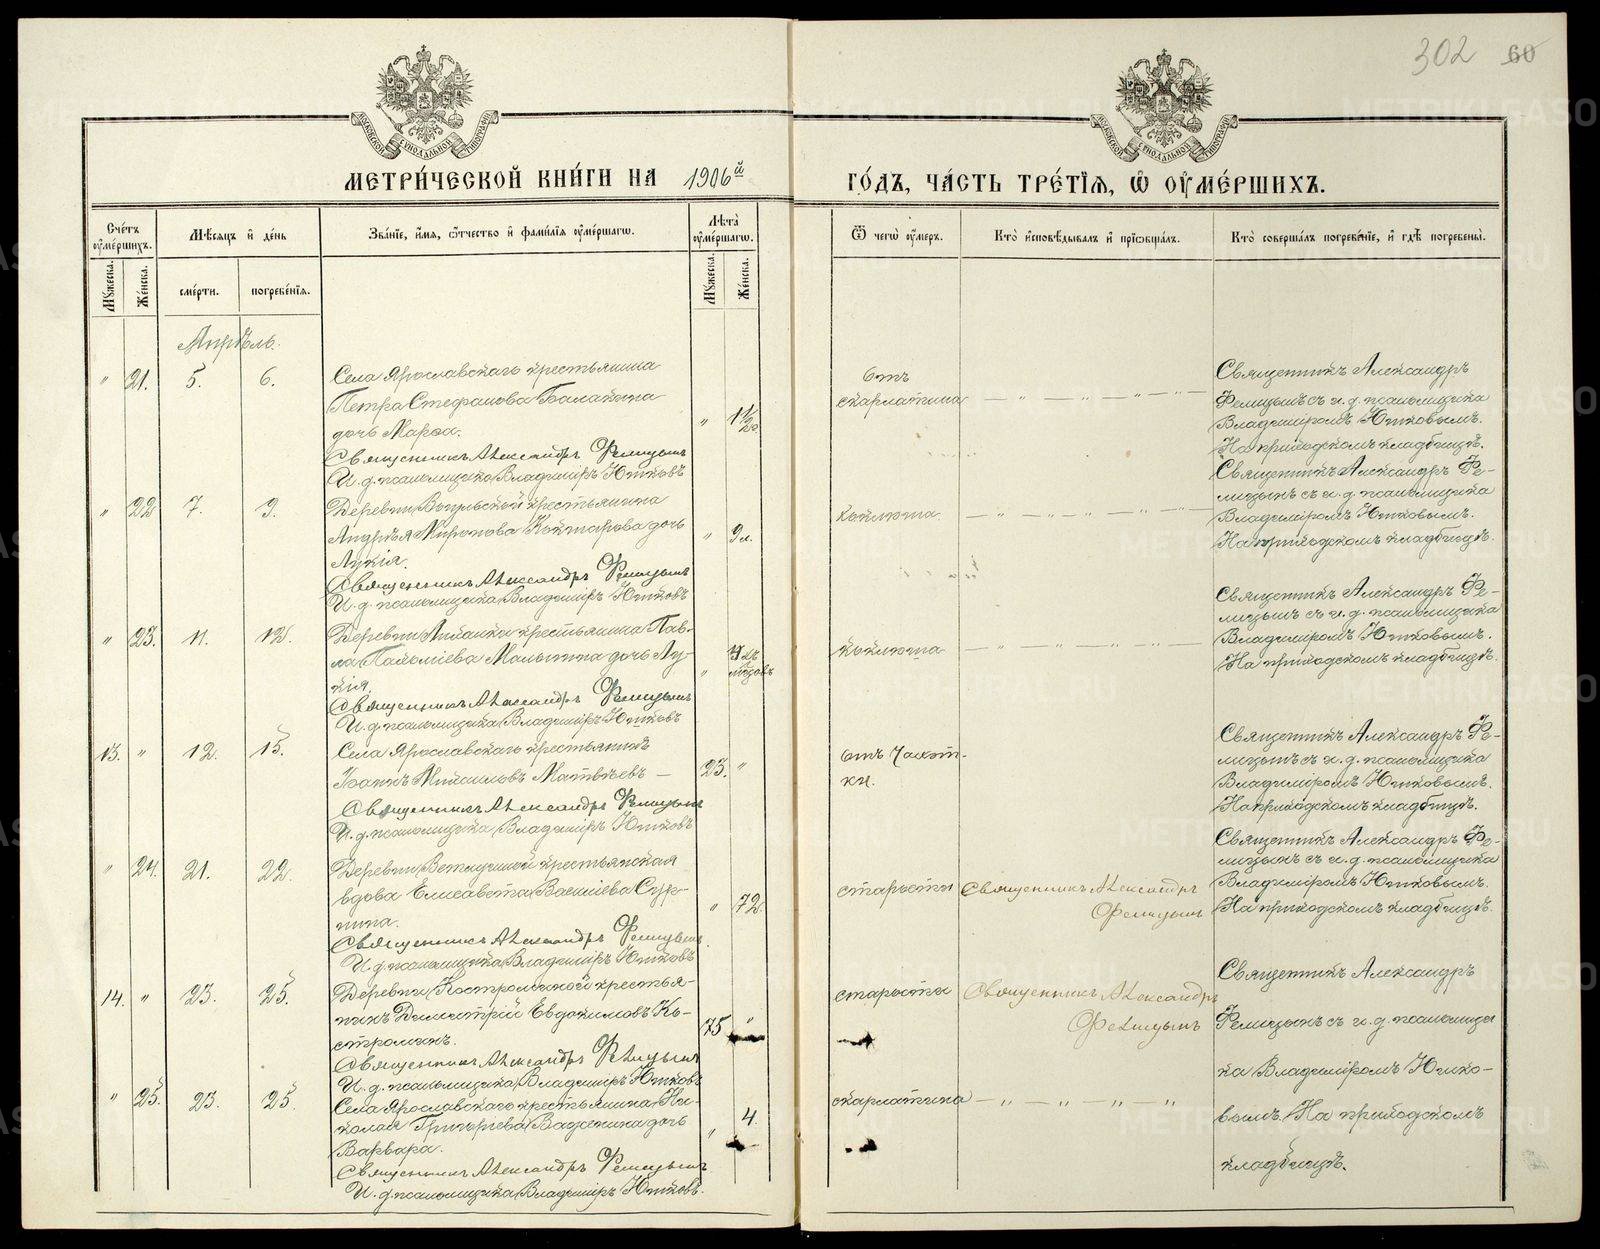 302 60
МОСКОВСКОЙ СѴНОДАЛЬНОЙ ТИПОГРАФІИ
МОСКОВСКОЙ СѴНОДАЛЬНОЙ ТИПОГРАФІИ
МЕТРИ́ЧЕСКОЙ КНИ́ГИ НА 1906й ГО́ДЪ, ЧА́СТЬ ТРЕ́ТІѦ, Ѡ҆ ОУ҆МЕ́РШИХЪ.
Сче́тъ оу҆ме́ршихъ.
Мꙋ́жеска.
Же́нска.
Мѣ́сяцъ и҆ де́нь
сме́рти.
погребе́нїя.
Зва́нїе, и҆́мя, ѻ҆́тчество и҆ фами́лїя оу҆ме́ршагѡ.
Лѣ́та оу҆ме́ршагѡ.
Мꙋ́жеска.
Же́нска.
Ѿ чегѡ̀ оу҆́меръ.
Кто̀ и҆сповѣ́дывалъ и҆ прїѡбща́лъ.
Кто̀ соверша́лъ погребе́нїе, и҆ гдѣ̀ погребены̀.
Апрѣль.
" 21. 5. 6.
Села Ярославскаго крестьянина
Петра Стефанова Балакина
дочь Марѳа.
Священникъ Александръ Фелицынъ
И. д. псаломщика Владиміръ Ютковъ
" 1½
Отъ
скарлатина — " — " — " — "
Священникъ Александръ
Фелицынъ съ и. д. псаломщика
Владиміромъ Ютковымъ.
На приходскомъ кладбищѣ.
" 22 7. 9.
Деревни крестьянина
Андрея Миронова дочь
Лукія.
Священникъ Александръ Фелицынъ
И. д. псаломщика Владиміръ Ютковъ
" 9 м.
Коклюша — " — " — " — "
Священникъ Александръ Фе-
лицынъ съ и. д. псаломщика
Владиміромъ Ютковымъ.
На приходскомъ кладбищѣ.
" 23. 11. 12.
Деревни крестьянина Пав-
ла Малыгина дочь Лу-
кія.
Священникъ Александръ Фелицынъ
И. д. псаломщика Владиміръ Ютковъ
"
Коклюша — " — " — " — "
Священникъ Александръ Фе-
лицынъ съ и. д. псаломщика
Владиміромъ Ютковымъ.
На приходскомъ кладбищѣ.
13. " 12. 15.
Села Ярославскаго крестьянинъ
Іоаннъ Михаиловъ Матвѣевъ —
Священникъ Александръ Фелицынъ
И. д. псаломщика Владиміръ Ютковъ
23. "
Отъ Чахот-
ки.
Священникъ Александръ Фе-
лицынъ съ и. д. псаломщика
Владиміромъ Ютковымъ.
На приходскомъ кладбищѣ.
" 24. 21. 22.
Деревни крестьянская
вдова Елисавета Василіева Суро-
гина.
Священникъ Александръ Фелицынъ.
И. д. псаломщика Владиміръ Ютковъ
" 72.
старости
Священникъ Александръ
Фелицынъ
Священникъ Александръ Фе-
лицынъ съ и. д. псаломщика
Владиміромъ Ютковымъ.
На приходскомъ кладбищѣ.
14. " 23. 25.
Деревни Костроминой крестья-
нинъ Димитрій Евдокимовъ Ко-
строминъ.
Священникъ Александръ Фелицынъ
И. д. псаломщика Владиміръ Ютковъ
75 "
старости
Священникъ Александръ
Фелицынъ
Священникъ Александръ
Фелицынъ съ и. д. псаломщи
ка Владиміромъ Ютко-
вымъ. На приходскомъ
кладбищѣ.
" 25. 23. 25.
Села Ярославскаго крестьянина Ни-
колая Григорьева дочь
Варвара.
Священникъ Александръ Фелицынъ
И. д. псаломщика Владиміръ Ютковъ.
" 4.
скарлатина — " — " — " — "